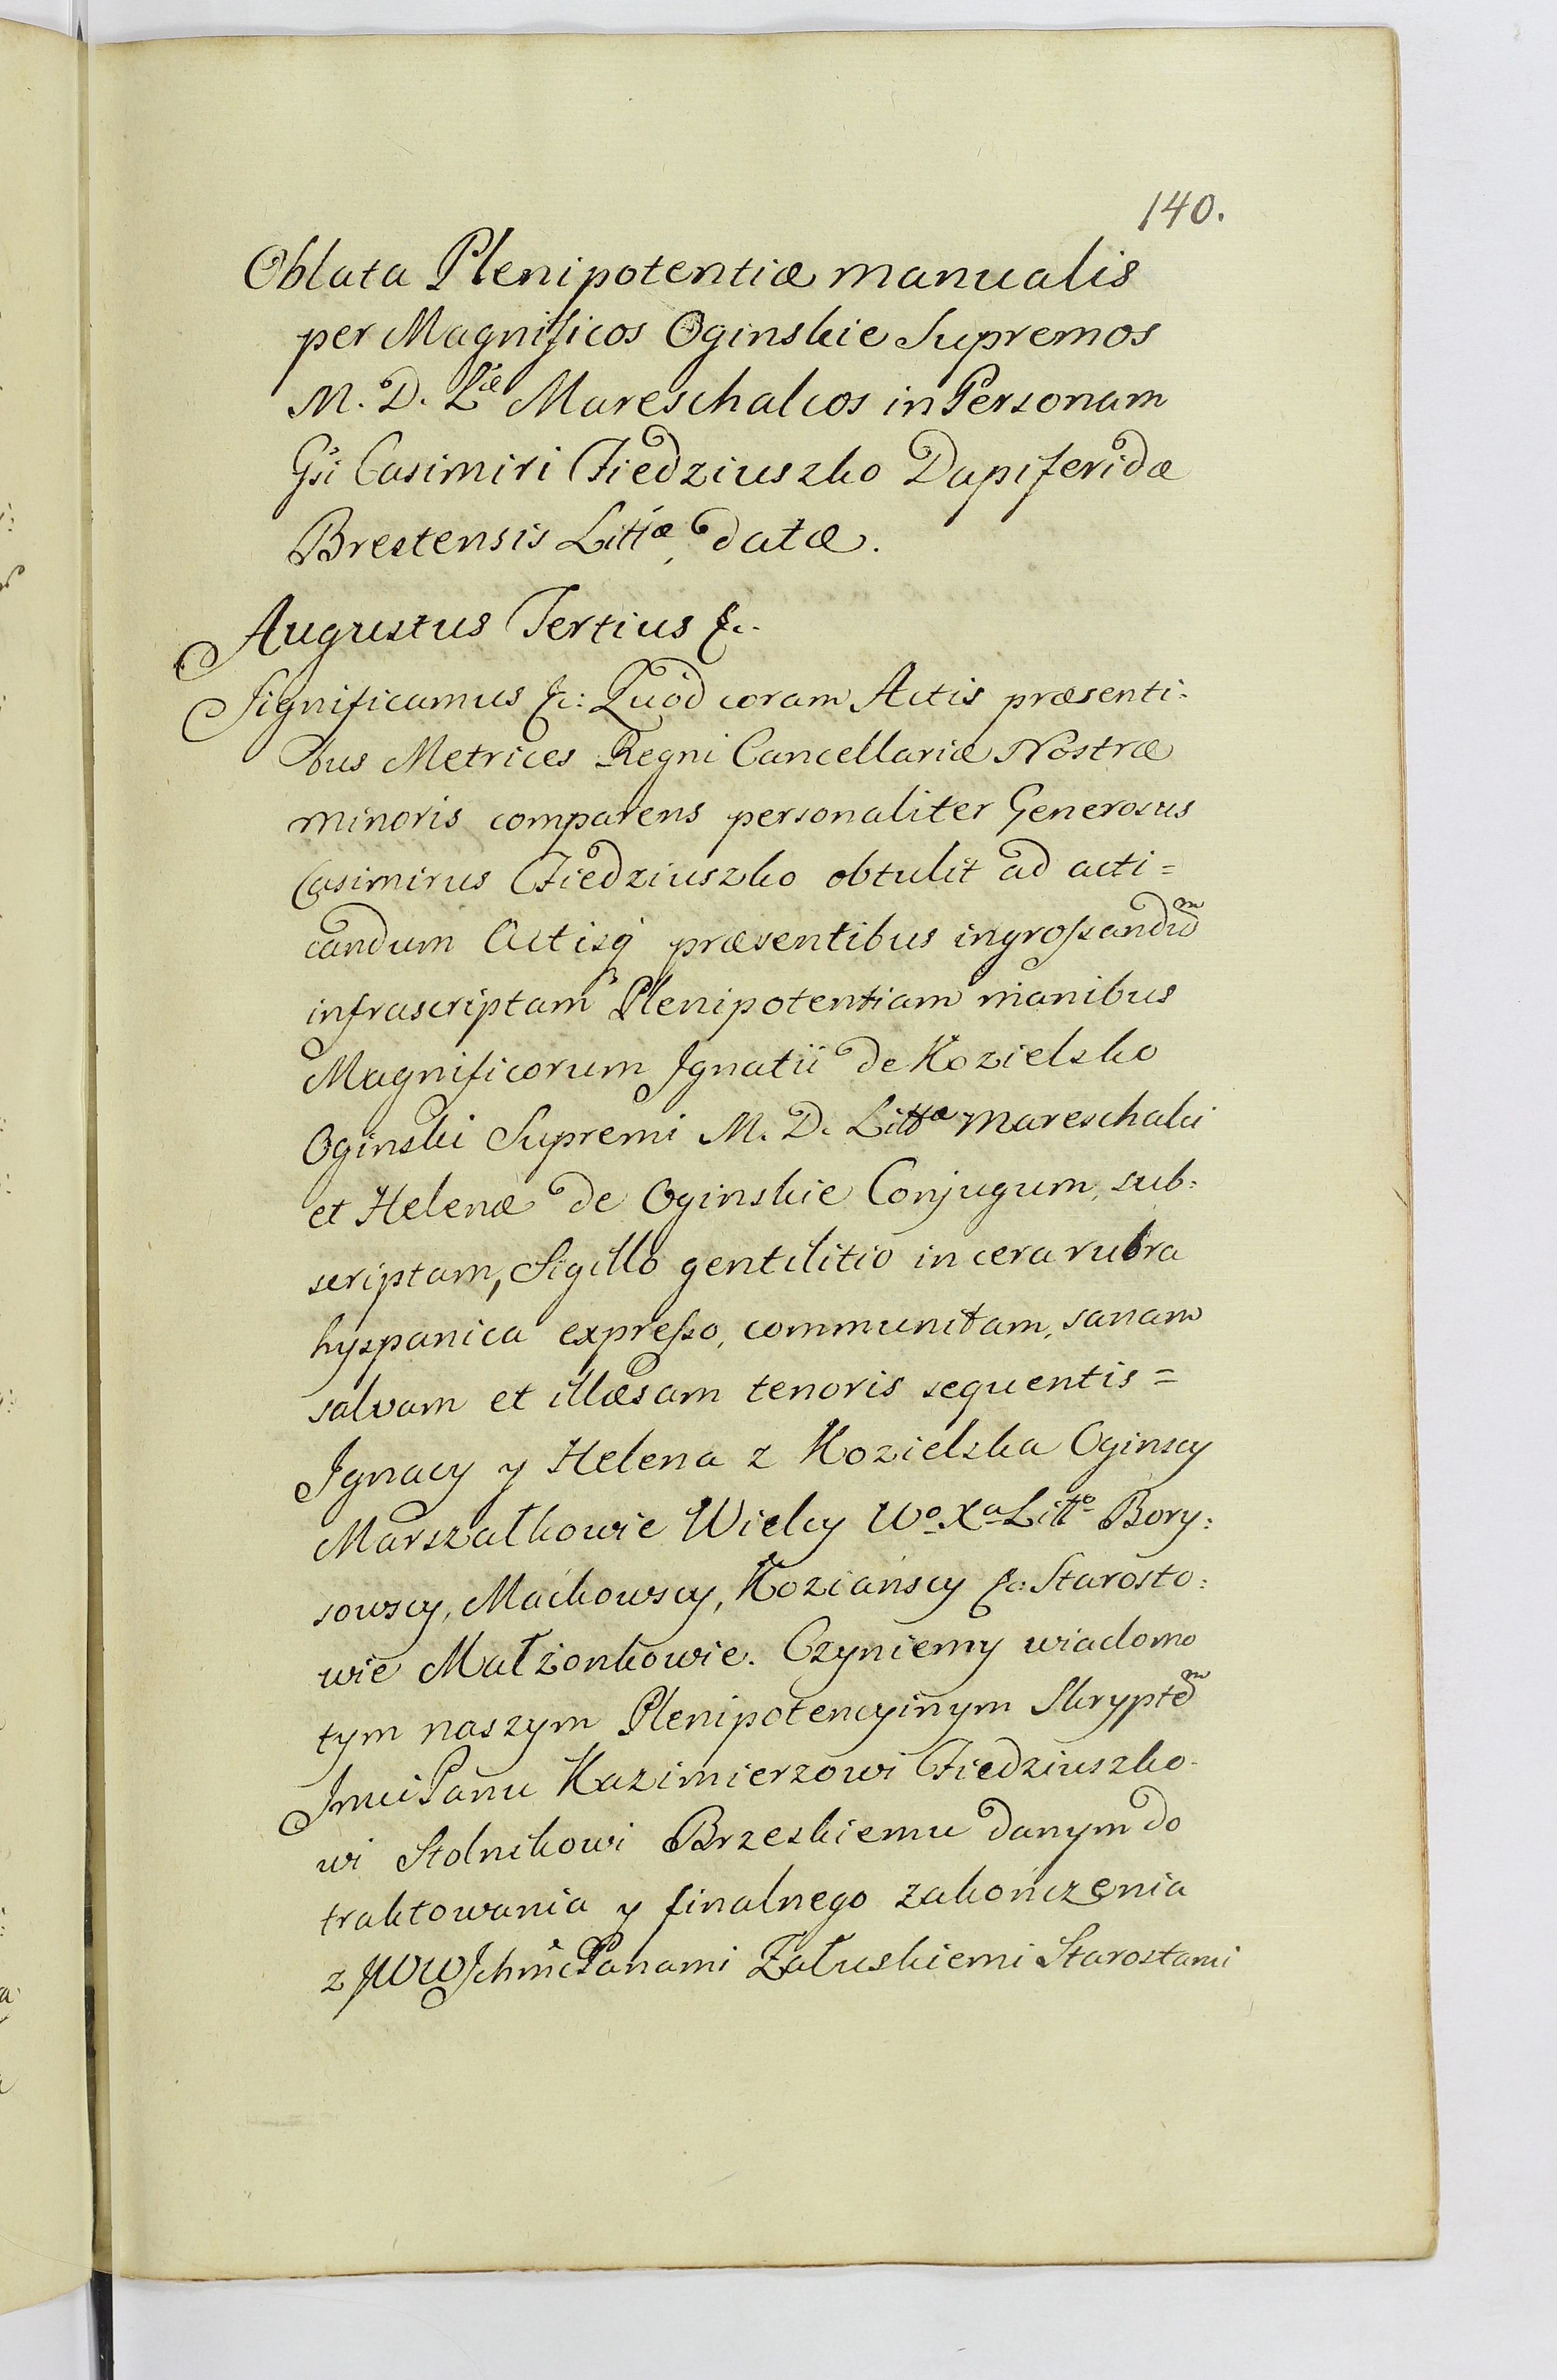 140.
Oblata Plenipotentiæ manualis
per Magnificos Oginskie Supremos
M. D. Lĩæ Mareschalcos in Personam
Gsi Casimiri Fiedziuszko Dapiferidæ
Brestensis Littĩæ, datæ.
Augustus Tertius &c.
Significamus &c: Quòd coram Actis præsenti:
bus Metrices Regni Cancellariæ Nostræ
minoris comparens personaliter Generosus
Casimirus Fiedziuszko obtulit ad acti=
candum Actisq́ præsentibus ingrossandũm
infrascriptam Plenipotentiam manibus
Magnificorum Ignatii de Kozielsko
Oginski Supremi M. D. Littæ Mareschalci
et Helenæ de Oginskie Conjugum, sub:
scriptam, Sigillo gentilitio in cera rubra
hyspanica expresso, communitam, sanam
salvam et illæsam tenoris sequentis =
Ignacy y Helena z Kozielska Oginscy
Marszałkowie Wielcy Wo. Xa Litto Bory:
sowscy, Maćkowscy, Koziańscy &c: Starosto:
wie Małżonkowie. Czyniemy wiadomo
tym naszym Plenipotencyinym Skryptem
Jmci Panu Kazimierzowi Fiedziuszko-
wi Stolnikowi Brzeskiemu danym do
traktowania y finalnego zakończenia
z JWW Ichmć Panami Załuskiemi Starostami